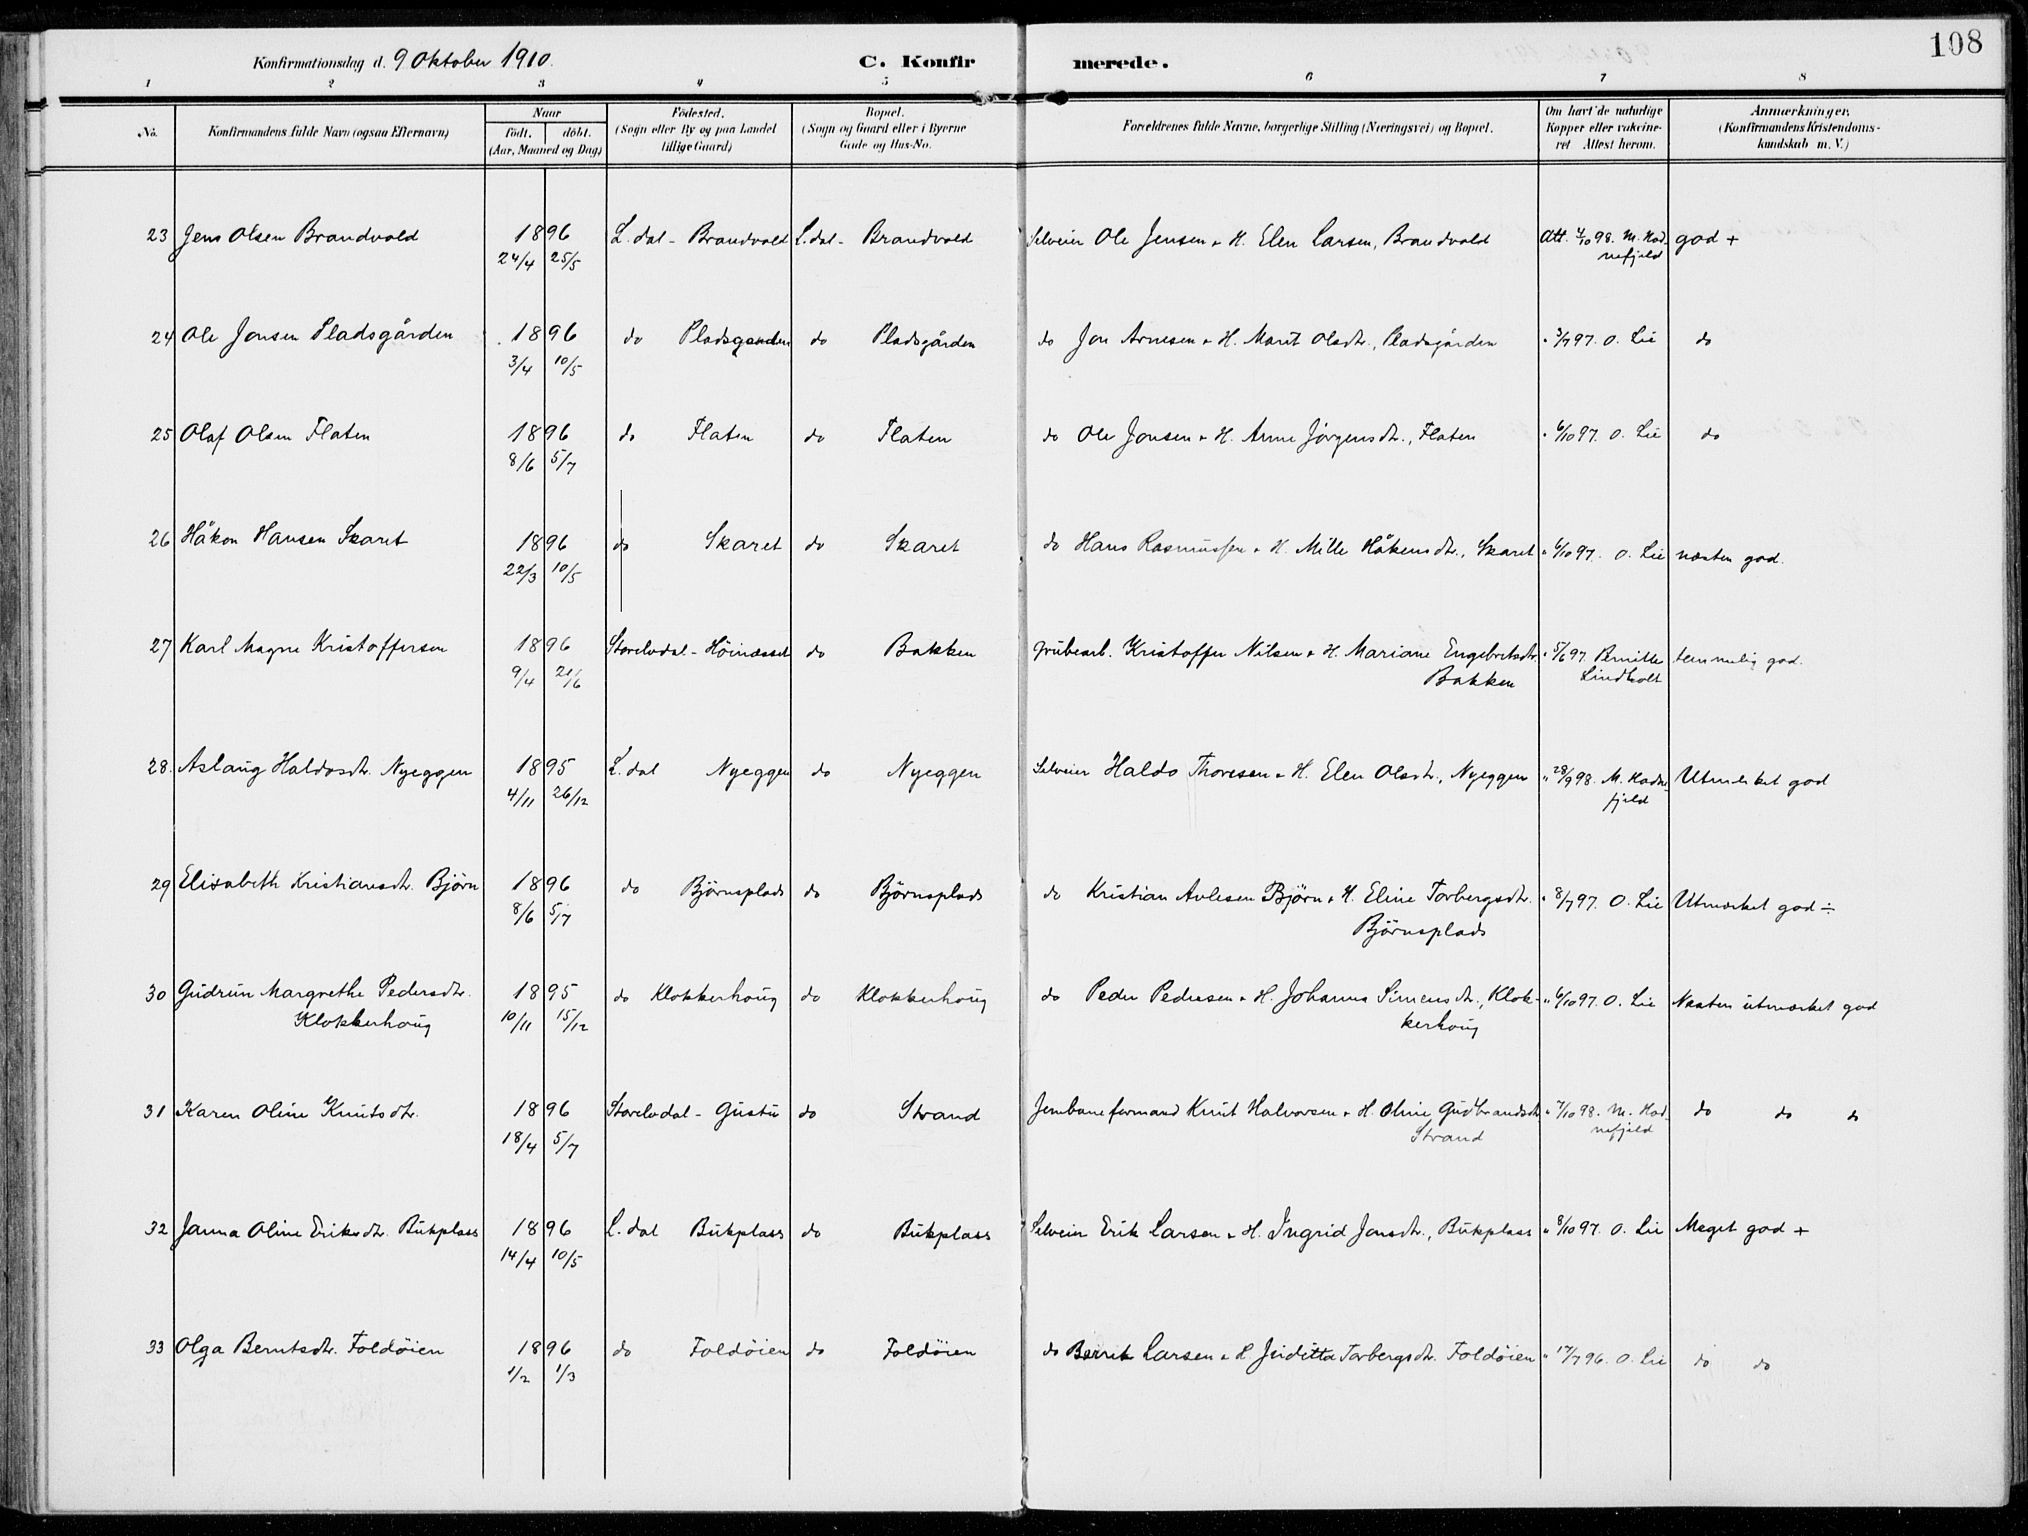 108
Konfirmationsdag d. 9 Oktober 1910. C. Konfirmerede.
1 2 3 4 5 6 7 8
No. Konfirmandens fulde Navn (ogsaa Efternavn) Naar født. døbt. (Aar, Maaned og Dag) Fødested. (Sogn eller By og paa Landet tillige Gaard) Bopæl. (Sogn og Gaard eller i Byerne Gade og Hus-No. Forældrenes fulde Navne, borgerlige Stilling (Næringsvei) og Bopæl. Om havt de naturlige Kopper eller vakcineret Attest herom. Anmærkninger. (Konfirmandens Kristendomskundskab m. V.)
23 Jens Olsen Brandvold 1896 L.dal - Brandvold L.dal - Brandvold Selveier Ole Jensen & H. Elen Larsen, Brandvold Att. 4/10 98. M. Had- god +
24/4 25/5 nefjeld
24 Ole Jonsen Pladsgården 1896 do Pladsgarden do Pladsgården do Jon Arnesen & H. Marit Olsdtr., Pladsgården " 3/7 97. O. Lie do
3/4 10/5
25 Olaf Olsen Flaten 1896 do Flaten do Flaten do Ole Jonsen & H. Anne Jörgensdtr., Flaten " 6/10 97. O. Lie do
8/6 5/7
26 Håkon Hansen Skaret 1896 do Skaret do Skaret do Hans Rasmussen & H. Mille Håkensdtr., Skaret " 6/10 97. O. Lie næsten god.
22/3 10/5
27 Karl Magne Kristoffersen 1896 Storelvdal - Höinæsset do Bakken Grubearb. Kristoffer Nilsen & H. Mariane Engebretsdtr. " 5/6 97. Pernille temmelig god.
9/4 21/6 Bakken Lindholt
28. Aslaug Haldosdtr. Nyeggen 1895 L.dal Nyeggen do Nyeggen Selveier Haldo Thoresen & H. Elen Olsdtr., Nyeggen " 28/9 98. M. Hadne- Utmerket god
4/11 26/12 fjeld
29 Elisabeth Kristiansdtr. Bjørn 1896 do Bjørnsplads do Bjørnsplads do Kristian Avlesen Bjørn & H. Eline Torbergsdtr. " 8/7 97. O. Lie Utmærket god ÷
8/6 5/7 Bjørnsplads
30 Gudrun Margrethe Pedersdtr. 1895 do Klokkerhoug do Klokkerhoug do Peder Pedersen & H. Johanna Simensdtr., Klok- " 6/10 97. O. Lie Næsten utmærket god
Klokkerhoug 10/11 15/12 kerhoug
31 Karen Oline Knutsdtr. 1896 Storelvdal - Gustu do Strand Jernbaneformand Knut Halvorsen & H. Oline Gudbrandsdtr. " 7/10 98. M. Had- do do do
18/4 5/7 Strand nefjeld
32 Janna Oline Eriksdtr. Bukplass 1896 L.dal Bukplass do Bukplass Selveier Erik Larsen & H. Ingrid Jonsdtr., Bukplass " 8/10 97. O. Lie Meget god +
14/4 10/5
33 Olga Berntsdtr. Foldøien 1896 do Foldøien do Foldøien do Bernt Larsen & H. Juditta Torbergsdtr. Foldøien " 17/7 96. O. Lie do do
1/2 1/3